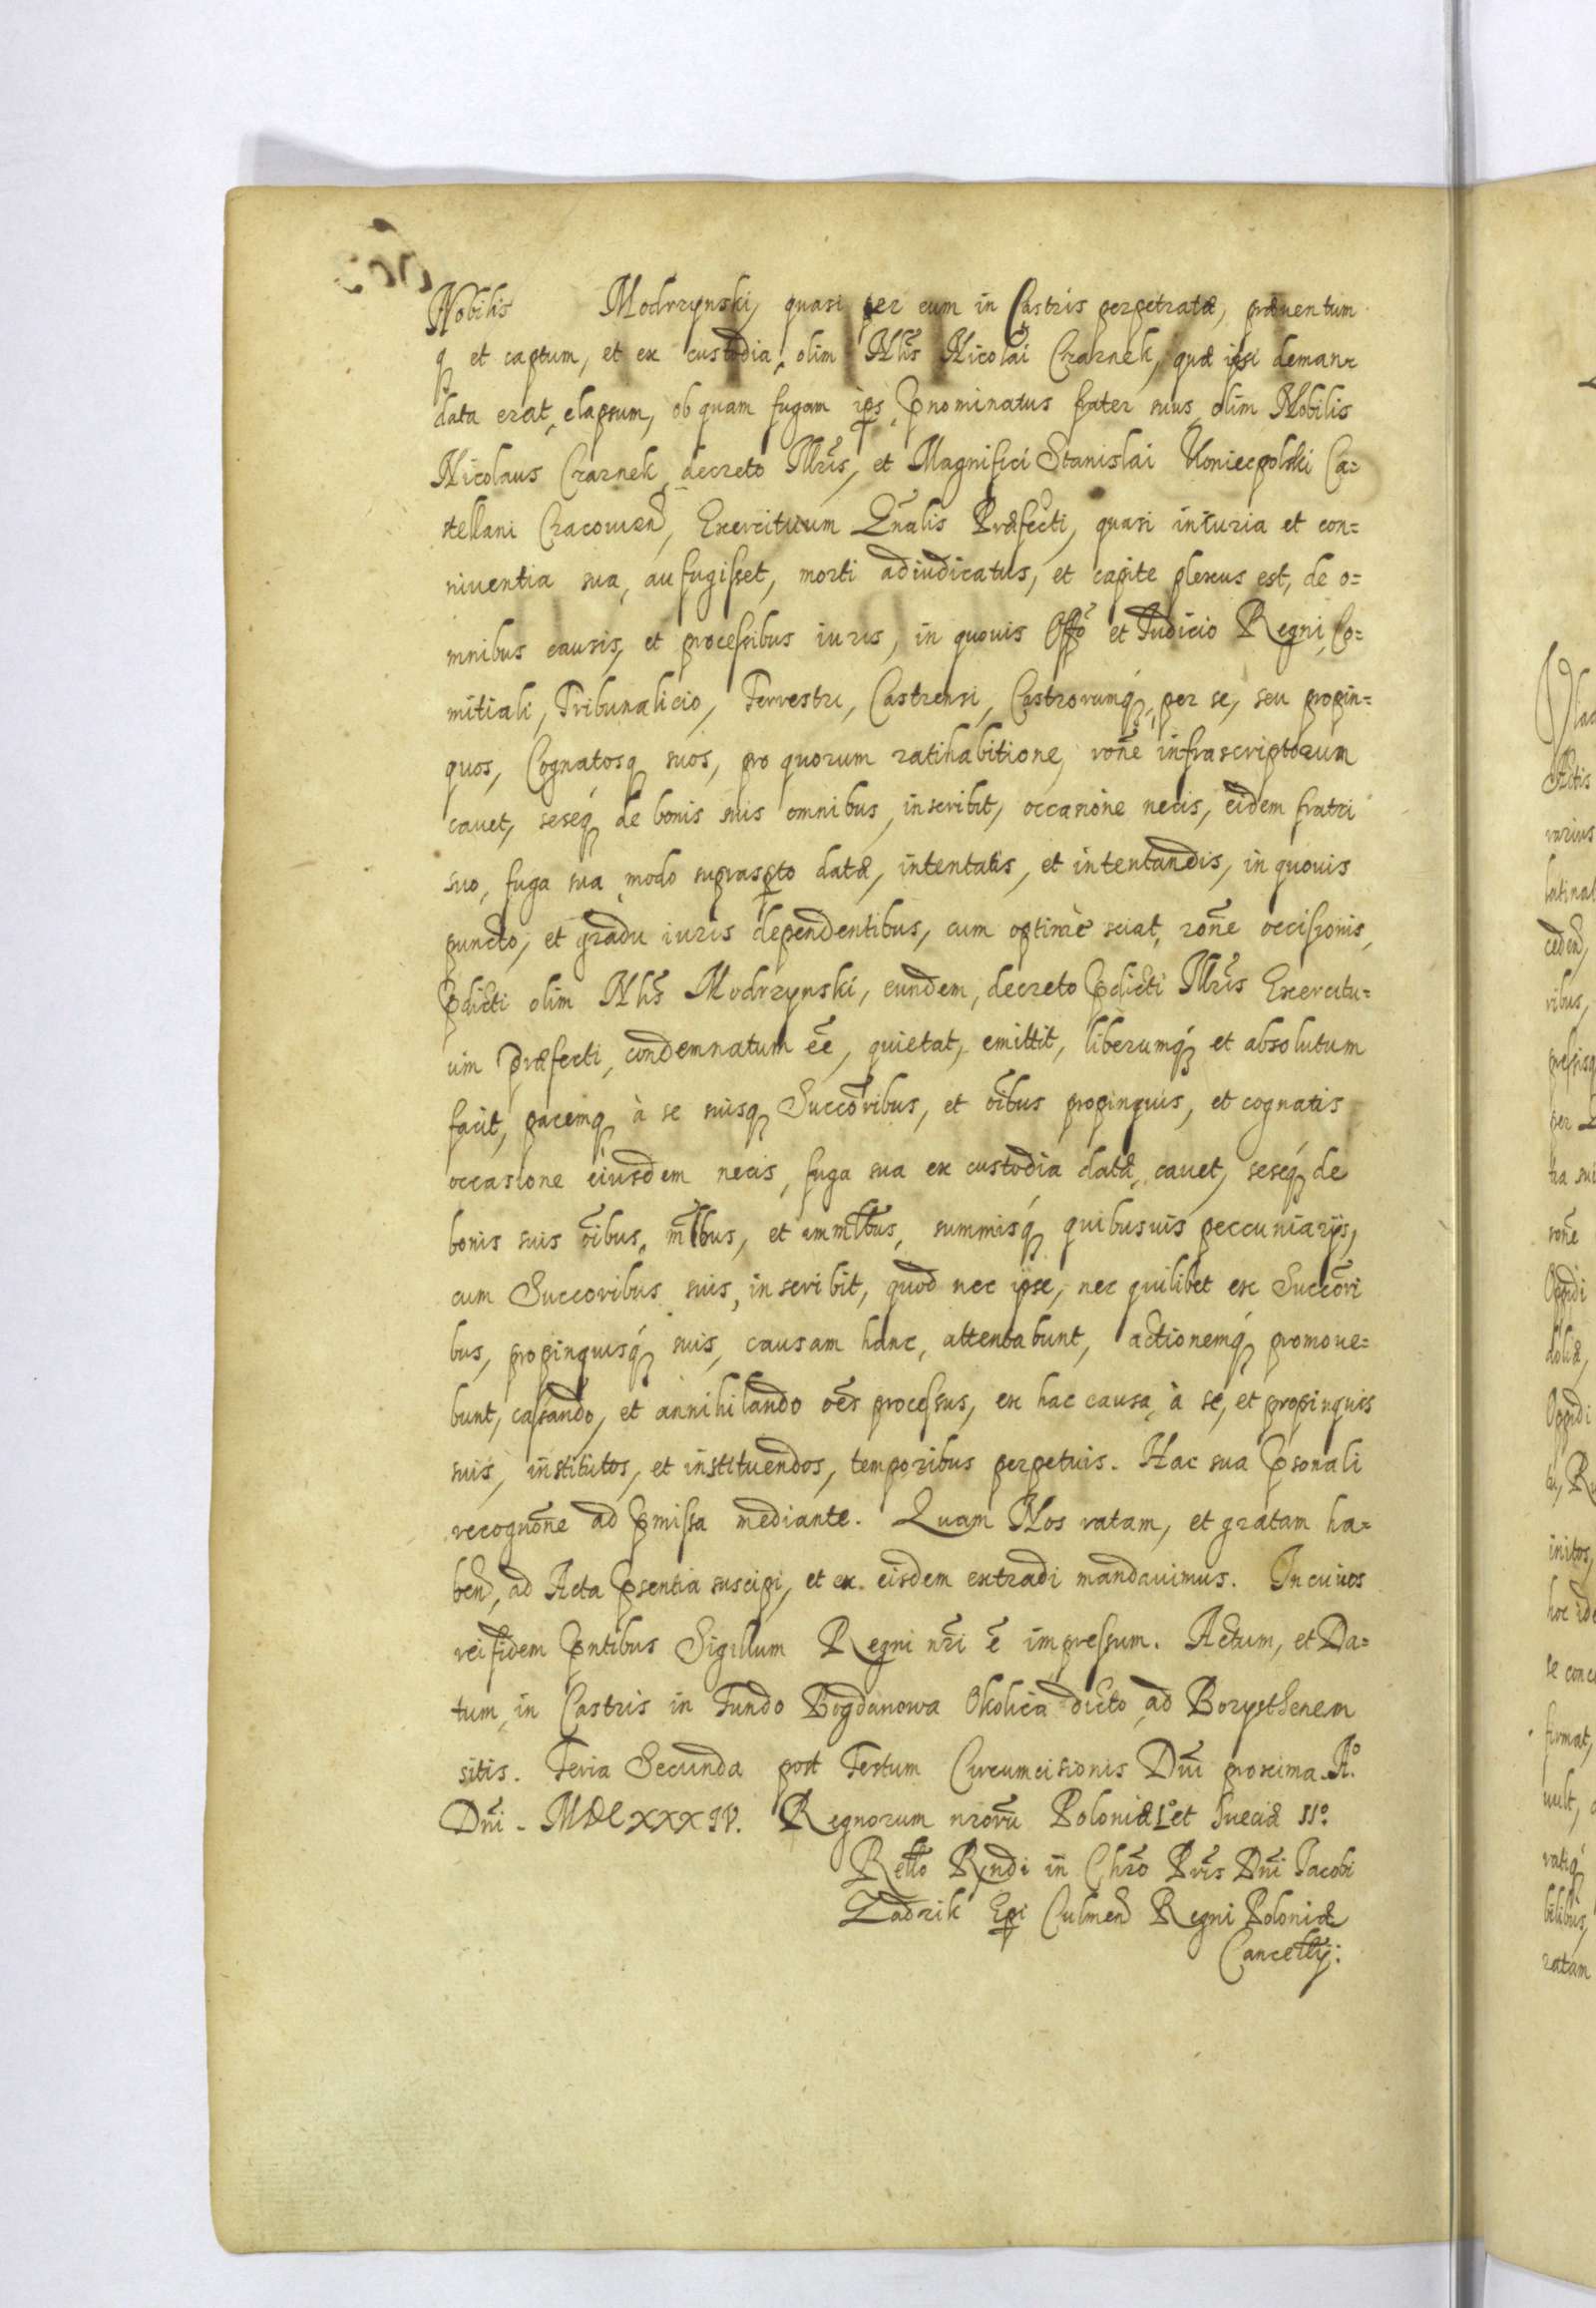 Nobilis Modrzynski, quasi per eum in Castris perpetratæ, præuentum
q̃ et captum, et ex custodia, olim Nlis̃ Nicolai Czarnek, quæ ipsi deman=
data erat, elapsum, ob quam fugam ip̃s, p̃nominatus frater suus, olim Nobilis
Nicolaus Czarnek, decreto Illris̃, et Magnifici Stanislai Koniecpolski Ca=
stellani Cracouien̄, Exercituum Gñalis Præfecti, quasi iniuria et con=
niuentia sua, aufugisset, morti adiudicatus, et capite plexus est, de o=
mnibus causis, et processibus iuris, in quouis Offõ et Iudicio Regni, Co=
mitiali, Tribunalicio, Terrestri, Castrensi, Castrorumq́, per se, seu propin=
quos, Cognatosq́ suos, pro quorum ratihabitione, rõne infrascriptorum
cauet, seseq́ de bonis suis omnibus, inscribit, occasione necis, eidem fratri
suo, fuga sua, modo suprasp̃to datæ, intentatis, et intentandis, in quouis
puncto, et gradu iuris dependentibus, cum optimè sciat, rõne occisionis,
p̃dicti olim Nlis̃ Modrzynski, eundem, decreto p̃dicti Illris̃ Exercitu=
um Præfecti, condemnatum eẽ, quietat, emittit, liberumq́ et absolutum
facit, pacemq́ à se suisq́ Succoribus, et oĩbus propinquis, et cognatis
occasione eiusdem necis, fuga sua ex custodia datæ, cauet, seseq́ de
bonis suis oĩbus, mlb̃us, et immlb̃us, summisq́ quibusuis peccuniarijs,
cum Succoribus suis, inscribit, quod nec ipse, nec quilibet ex Succori
bus, propinquisq́ suis, causam hanc, attentabunt, actionemq́ promoue=
bunt, cassando, et annihilando oẽs processus, ex hac causa, à se, et propinquis
suis, institutos, et instituendos, temporibus perpetuis. Hac sua p̃sonali
recognõne ad p̃missa mediante. Quam Nos ratam, et gratam ha=
ben̄, ad Acta p̃sentia suscipi, et ex eisdem extradi mandauimus. In cuius
rei fidem p̃ntibus Sigillum Regni nr̃i ẽ impressum. Actum, et Da=
tum, in Castris in Fundo Bogdanowa Okolica dicto, ad Borysthenem
sitis. Feria Secunda post Festum Circumcisionis Dñi proxima. A°.
Dñi. MDCXXXIV. Regnorum nrorũ Poloniæ 1° et Sueciæ 11°.
Retto Rxndi in Chrõ Pris̃ Dñi Jacobi
Zadzik Epi Culmen̄ Regni Poloniæ
Cancellrij.